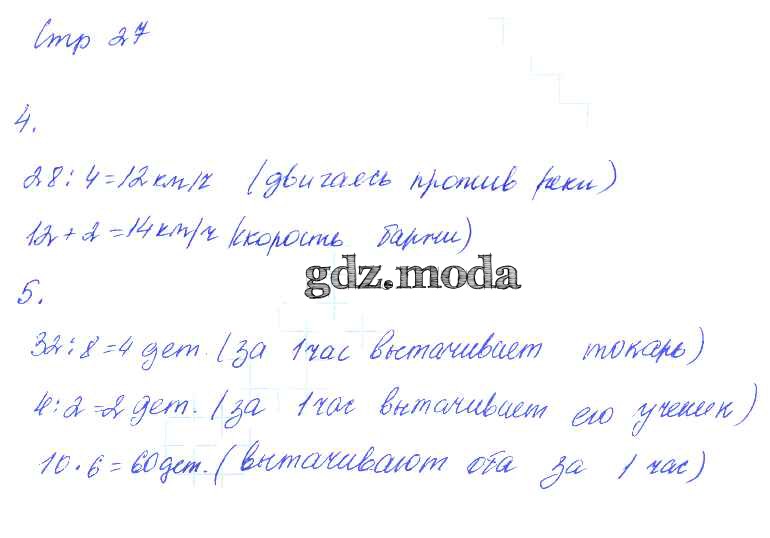 Стр 27
4.
28 : 4 = 12 км/ч (двигаясь против реки)
12 + 2 = 14 км/ч (скорость баржи)
gdz.moda
5.
32 : 8 = 4 дет. (за 1 час вытачивает токарь)
4 : 2 = 2 дет. (за 1 час вытачивает его ученик)
10 · 6 = 60 дет. (вытачивают оба за 1 час)